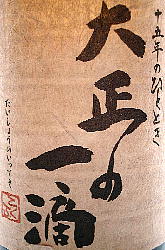 十五年のひととき
大正の一滴
たいしょうのいってき